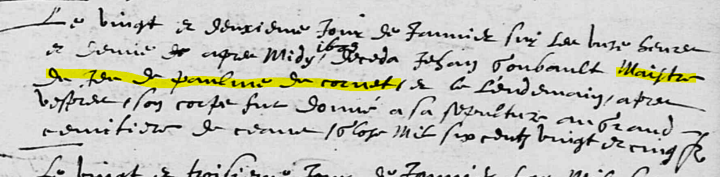 Le vingt et deuxieme Jour de Janvier sur les unze heures
et demie de apres Midy, 1625 deceda Jehan Goubault Maistre
du Jeu de paulme de cornet, et le lendemain, apres
vespres, son corps fut donné a sa sepulture au grand
cemitiere de ceans, l'an Mil six centz vingt et cinq
Le vingt et troisieme Jour de Janvier